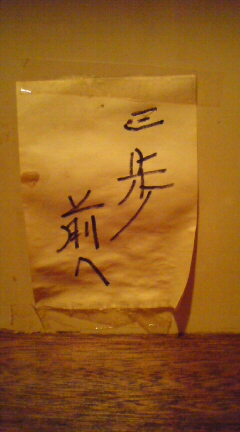 三歩
前へ